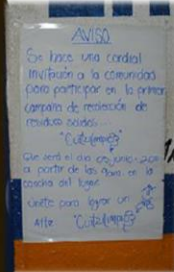 AVISO
Se hace una cordial
invitación a la comunidad
para participar en la primer
campaña de recolección de
residuos solidos...
Que será el día 05-junio-20
a partir de las 9am. en la
cancha del lugar
Unete para lograr un
Atte